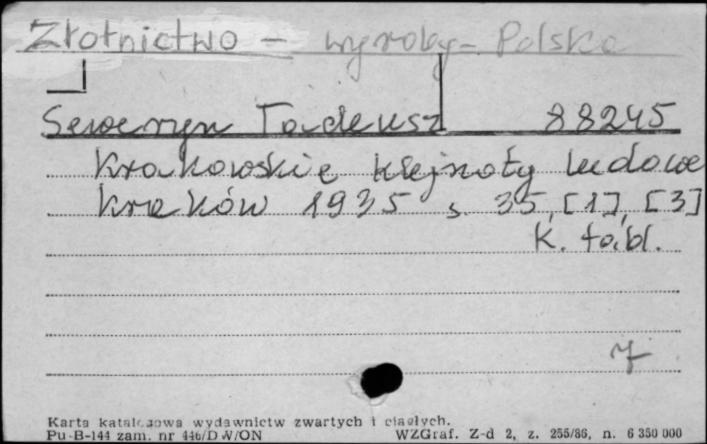 Złotnictwo - wyroby - Polska
Seweryn Tadeusz 88245
Krakowskie klejnoty ludowe
Kraków 1935 s. 35, [1], [3]
k. tabl.
7
Karta katalogowa wydawnictw zwartych i ciągłych.
Pu-B-144 zam. nr 446/DW/ON WZGraf. Z-d 2, z. 255/86, n. 6 350 000